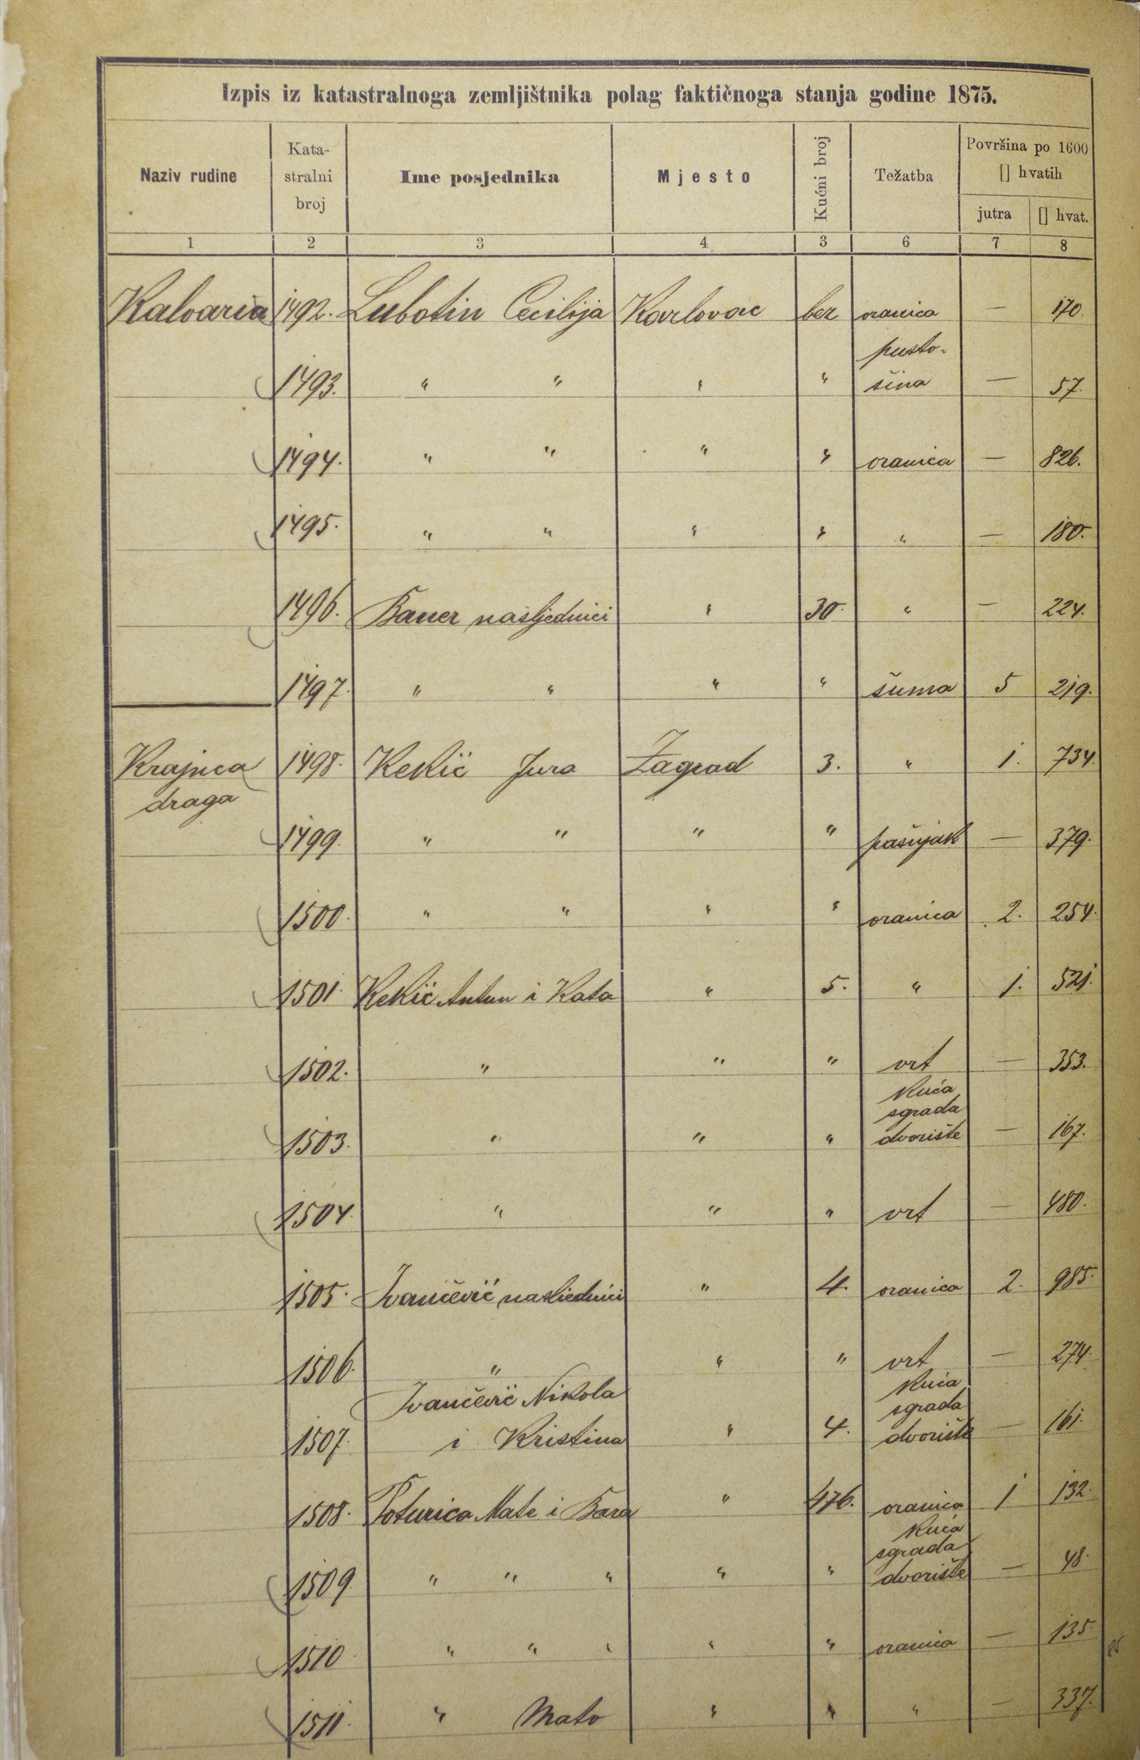 Izpis iz katastralnoga zemljištnika polag faktičnoga stanja godine 1875.
Naziv rudine Kata-stralni broj Ime posjednika Mjesto Kućni broj Težatba Površina po 1600 [] hvatih
jutra [] hvat.
1 2 3 4 3 6 7 8
Kalvaria 1492. Lubotin Cecilija Karlovac bez oranica — 170.
pusto-
1493. " " " " šina — 57.
1494. " " " " oranica — 826.
1495. " " " " " — 180.
1496. Bauer nasljednici " 30. " — 224.
1497. " " " " šuma 5 219.
Krajnca 1498. Kekić Jura Zagrad 3. " 1. 734.
draga
1499. " " " " pašnjak — 379.
1500. " " " " oranica 2. 254.
1501. Kekić Antun i Kata " 5. " 1. 521.
1502. " " " vrt — 353.
kuća
sgrada
1503. " " " dvorište — 167.
1504. " " " vrt — 480.
1505. Ivančević nasljednici " 4. oranica 2. 985.
1506. " " " vrt — 274.
Ivančević Nikola kuća
sgrada
1507. i Kristina " 4. dvorište — 161.
1508. Poturica Mate i Bara " 476. oranica 1 132.
kuća
sgrada
1509 " " " " " dvorište — 48.
1510 " " " " " oranica — 135.
1511. " Mato " " " — 337.